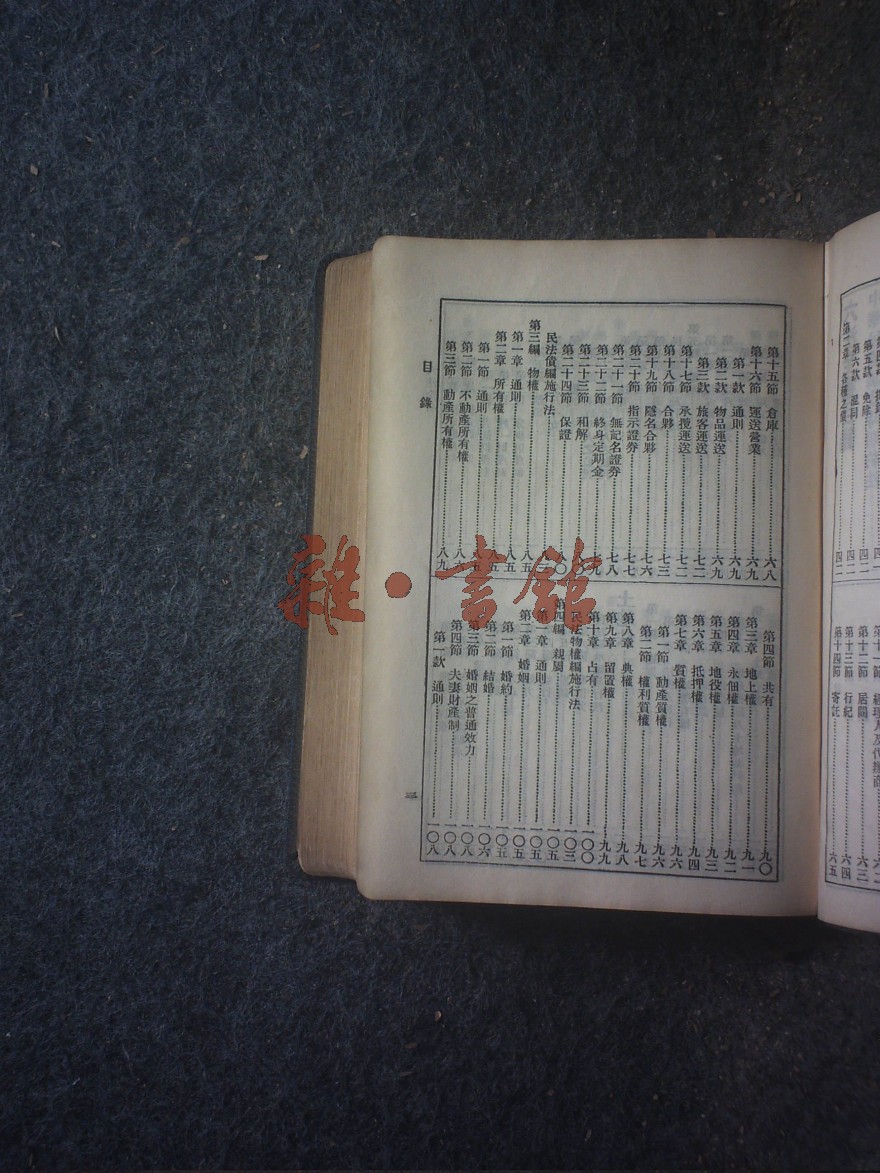 第五款 免除
第六款 混同
第二章 各種之債
四二
四二
四二
第十二節 居間
第十三節 行紀
第十四節 寄託
六三
六四
六五
第十五節 倉庫 六八
第十六節 運送營業 六九
第一款 通則 六九
第二款 物品運送 六九
第三款 旅客運送 七二
第十七節 承攬運送 七二
第十八節 合夥 七三
第十九節 隱名合夥 七六
第二十節 指示證券 七七
第二十一節 無記名證券 七八
第二十二節 終身定期金
第二十三節 和解
第二十四節 保證
民法債編施行法
第三編 物權 八五
第一章 通則 八五
第二章 所有權 八五
第一節 通則 八五
第二節 不動產所有權 八六
第三節 動產所有權 八九
第四節 共有 九〇
第三章 地上權 九一
第四章 永佃權 九二
第五章 地役權 九三
第六章 抵押權 九四
第七章 質權 九六
第一節 動產質權 九六
第二節 權利質權 九七
第八章 典權 九八
第九章 留置權 九九
第十章 占有 一〇〇
民法物權編施行法 一〇三
第四編 親屬 一〇五
第一章 通則 一〇五
第二章 婚姻 一〇五
第一節 婚約 一〇五
第二節 結婚 一〇六
第三節 婚姻之普通效力 一〇八
第四節 夫妻財產制 一〇八
第一款 通則 一〇八
目錄
三
雜·書館